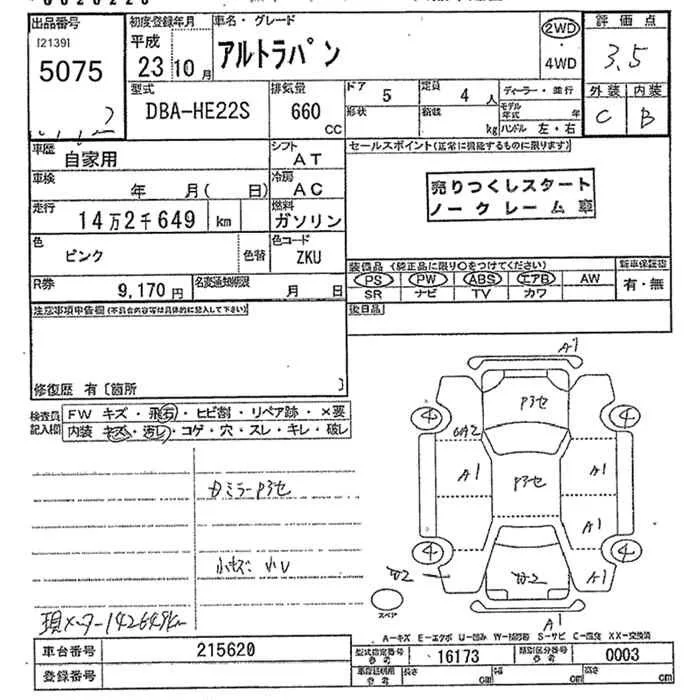 出品番号
[2139]
5075
初度登録年月
平成
23 10 月
車名・グレード
アルトラパン
2WD
4WD
評価点
3.5
外装 内装
C B
型式
DBA-HE22S
排気量
660
CC
ドア
5
定員
4 人
形状
積載
kg
ディーラー・並行
モデル年式 年
ハンドル 左・右
車歴
自家用
シフト
AT
車検
年 月( 日)
冷房
AC
走行
14万2千649 km
燃料
ガソリン
色
ピンク
色替
色コード
ZKU
R券
9,170 円
名変通知期限
月 日
セールスポイント(正常に機能するものに限ります)
売りつくしスタート
ノークレーム車
装備品 (純正品に限り○をつけてください)
PS PW ABS エアB AW
SR ナビ TV カワ
新車保証書
有・無
後日品
注意事項申告欄(不具合内容等は具体的に記入して下さい)
修復歴 有〔箇所 〕
検査員記入欄
FW キズ・飛石・ヒビ割・リペア跡・×要
内装 キズ・汚レ・コゲ・穴・スレ・キレ・破レ
カミラーPヌセ
小キズ 小U
現メーター142649km
A1
4
4
4
4
A1
A1
A1
A1
A1
スペア
A1
A-キズ E-エクボ U-凹み W-補修跡 S-サビ C-腐食 XX-交換済
車台番号
215620
登録番号
型式指定番号 参考
16173
類別区分番号 参考
0003
車庫証明用 参考
長さ cm
幅 cm
高さ cm